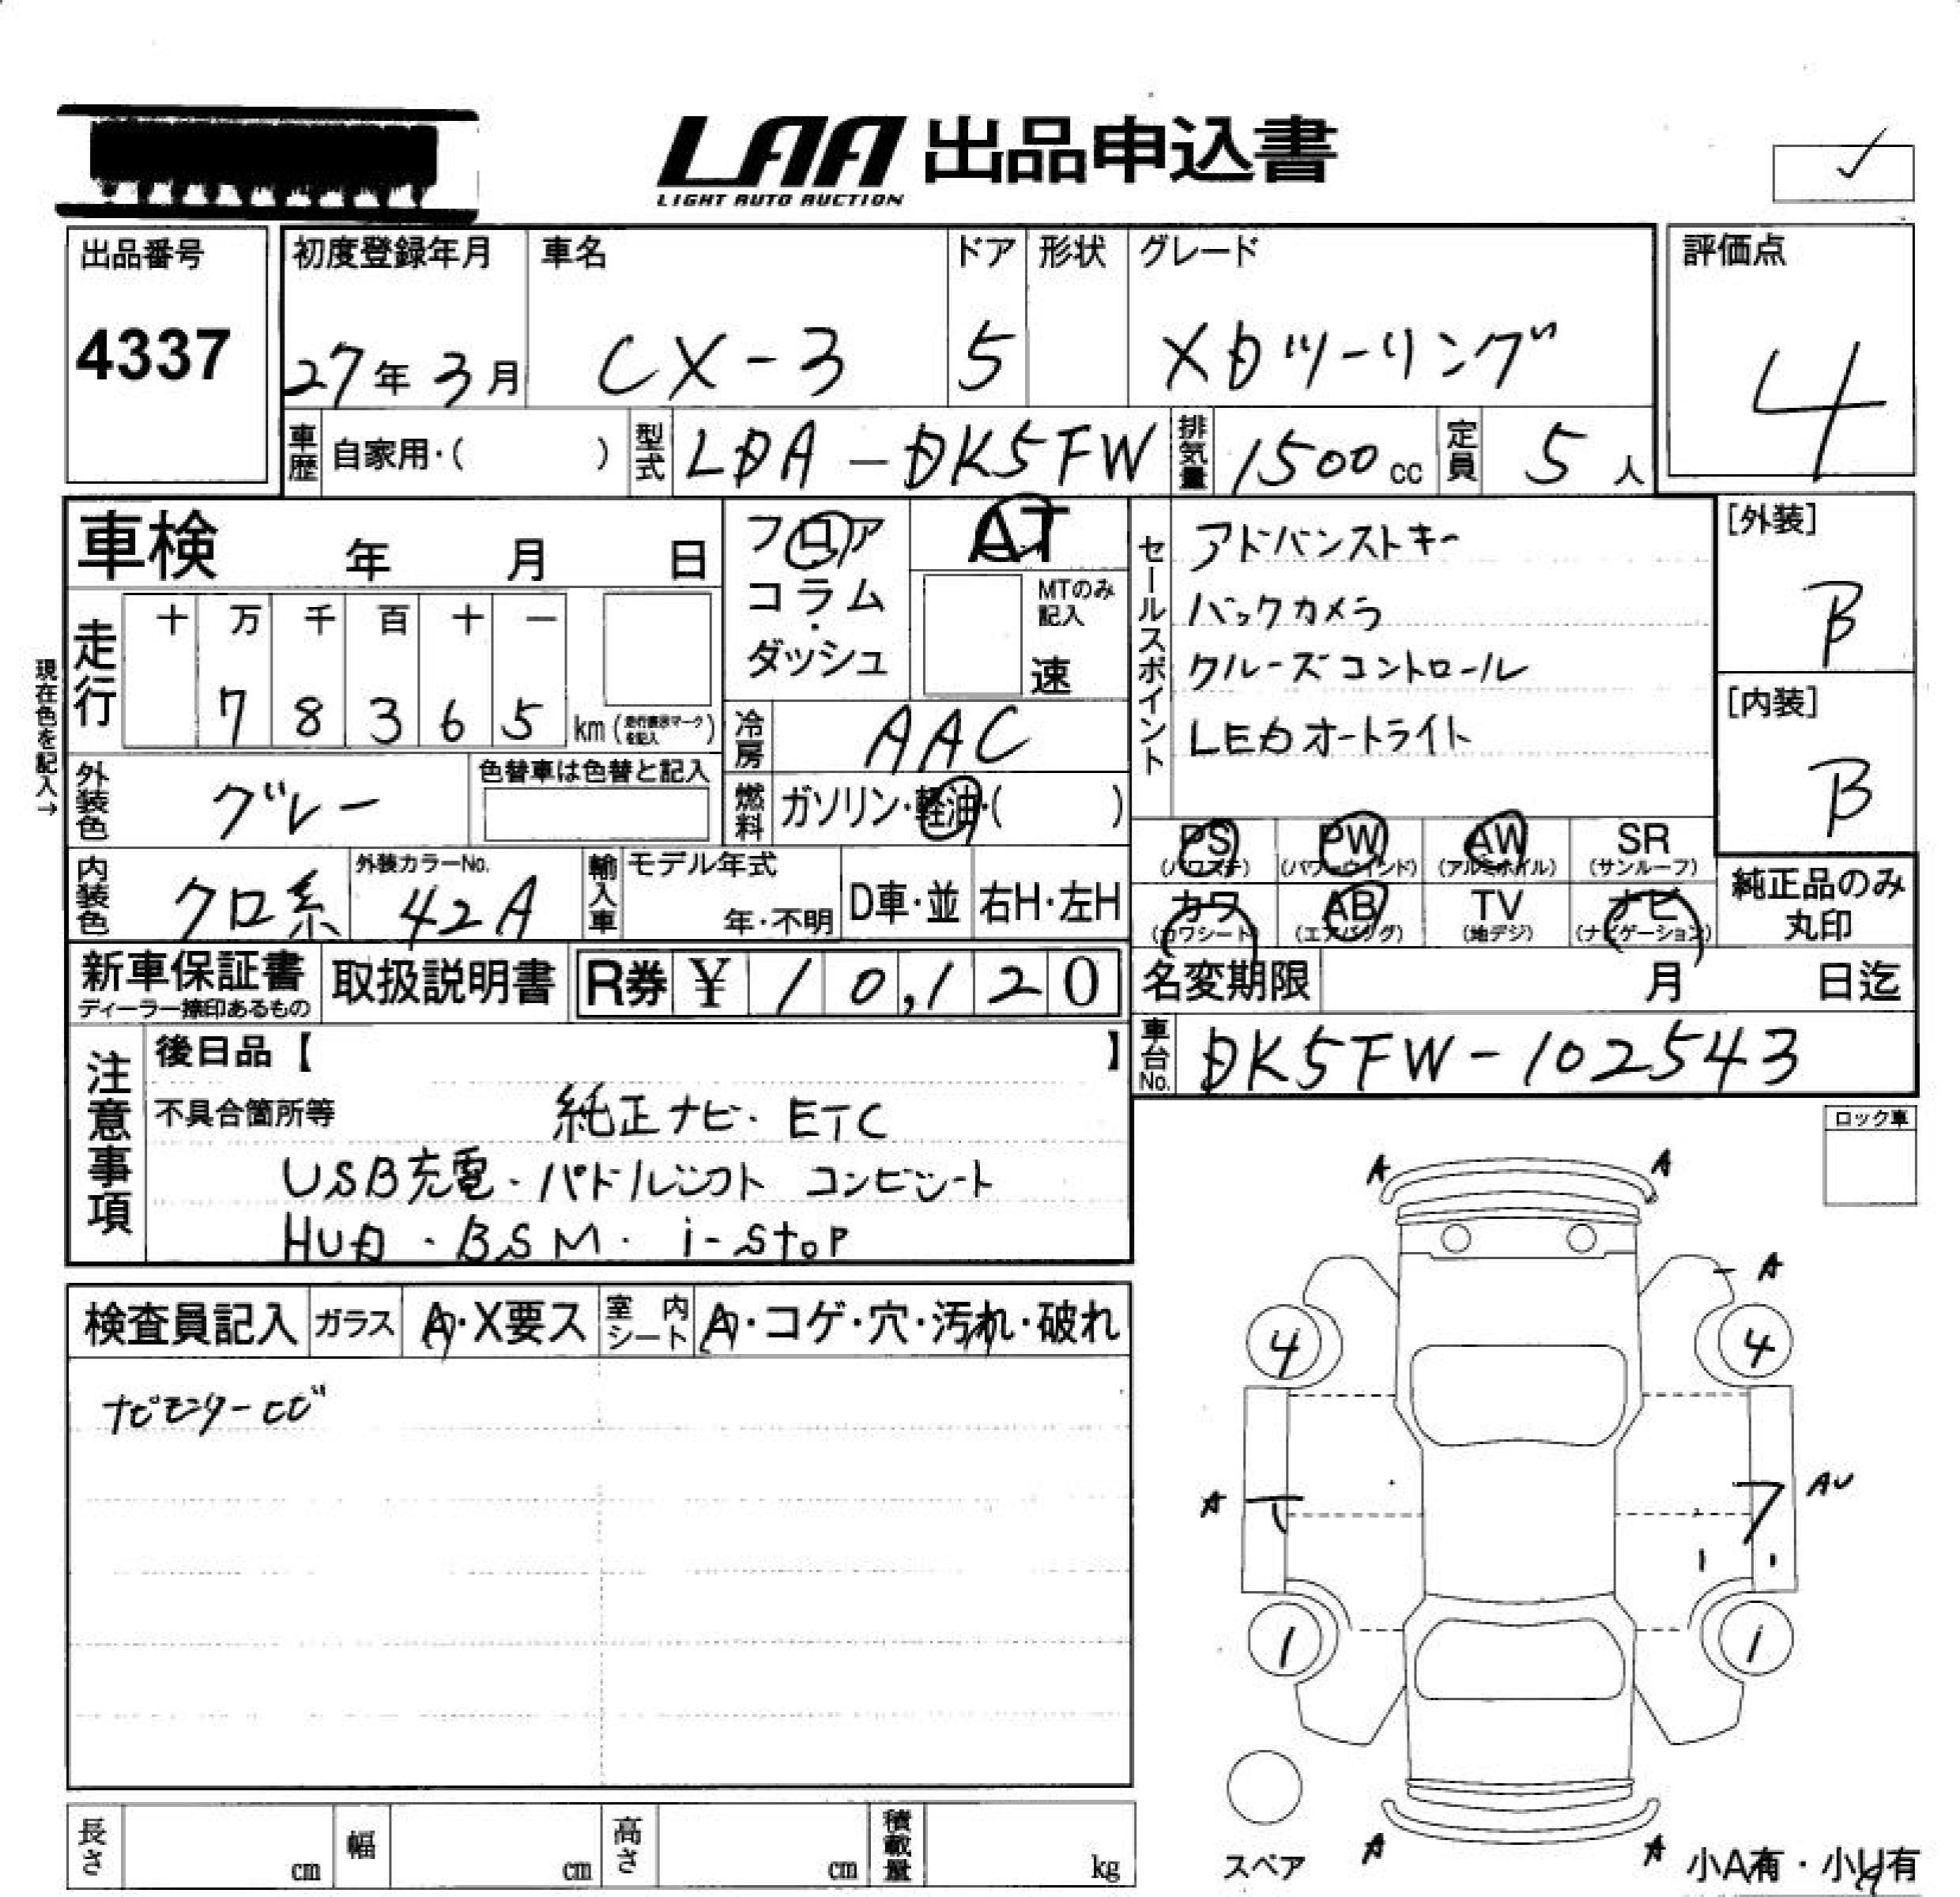 LAA 出品申込書
LIGHT AUTO AUCTION
出品番号
4337
初度登録年月 車名 ドア 形状 グレード
27年 3月 CX-3 5 XDツーリング
評価点
4
車歴 自家用・( ) 型式 LDA-DK5FW 排気量 1500cc 定員 5人
車検 年 月 日
フロア
コラム
・
ダッシュ
AT
MTのみ
記入
速
セールスポイント
アドバンストキー
バックカメラ
クルーズコントロール
LEDオートライト
[外装]
B
[内装]
B
現在色を記入→
走行
十 万 千 百 十 一
7 8 3 6 5 km (走行表示マークを記入)
冷房 AAC
外装色 グレー
色替車は色替と記入
燃料 ガソリン・軽油・( )
内装色 クロ系
外装カラーNo.
42A
輸入車 モデル年式
年・不明
D車・並 右H・左H
PS (パワステ) PW (パワーウインド) AW (アルミホイル) SR (サンルーフ)
カワ (カワシート) AB (エアバッグ) TV (地デジ) ナビ (ナビゲーション)
純正品のみ
丸印
新車保証書
ディーラー捺印あるもの
取扱説明書
R券 ¥ 10,120
名変期限 月 日迄
車台No. DK5FW-102543
注意事項
後日品【 】
不具合箇所等 純正ナビ・ETC
USB充電・パドルシフト コンビシート
HUD・BSM・i-stop
ロック車
検査員記入 ガラス A・X要ス 室内シート A・コゲ・穴・汚れ・破れ
ナビモニターヒビ
A A
A
4 4
A AU
1 1
A A
スペア
小A有・小U有
長さ cm 幅 cm 高さ cm 積載量 kg